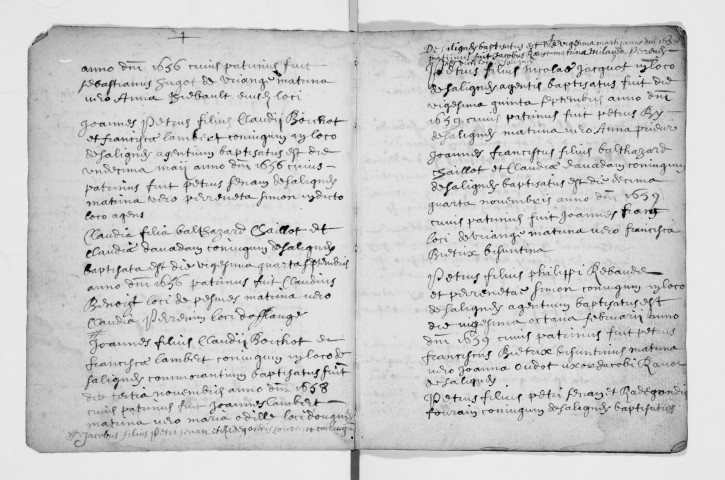 anno dni 1636 cuius patrinus fuit
sebastianus Hugot de vriange matrina
vero Anna Biebault eiusd loci
Joannes Petrus filius Claudii Bochot
et francisca lambert coniugum in loco
de saligney agentium baptisatus est die
undecima maii anno dni 1636 cuius
patrinus fuit petrus senam de saligney
matrina vero perreneta simon in dicto
loco agens
Claudia filia balthazard Chaillot et
Claudia davadam coniugum de saligney
baptisata est die vigesima quarta septembris
anno dni 1636 patrinus fuit Claudius
Benoist loci de pesmes matrina vero
Claudia Perrenin loci doflange
Joannes filius Claudii Bochot et
francisca lambert coniugum in loco de
saligney commorantium baptisatus fuit
die tertia novembris anno dni 1638
cuius patrinus fuit Joannes lambert
matrina vero maria odille loci dougney
Jacobus filius petri senam et Radegondis fouram coniugum
De saligney baptisatus est die vigesima martii anno dni 1639
patrinus fuit Jacobus matrina
Petrus filius Nicolai Jacquot in loco
de saligney agentis baptisatus fuit die
vigesima quinta septembris anno dni
1639 cuius patrinus fuit petrus Ry
de saligney matrina vero Anna prieur
Joannes franciscus filius balthazard
Chaillot et Claudia davadam coniugum
de saligney baptisatus est die decima
quarta novembris anno dni 1639
cuius patrinus fuit Joannes frant
loci de vriange matrina vero francisca
Bretux bisuntina
Petrus filius philippi Rebaude
et perreneta simon coniugum in loco
de saligney agentium baptisatus est
die vigesima octava februarii anno
dni 1639 cuius patrinus fuit petrus
franciscus Bretux bisuntinus matrina
vero Joanna oudot uxor Jacobi Ravor
de saligney
Petrus filius petri senam et Radegondis
fouram coniugum de saligney baptisatus